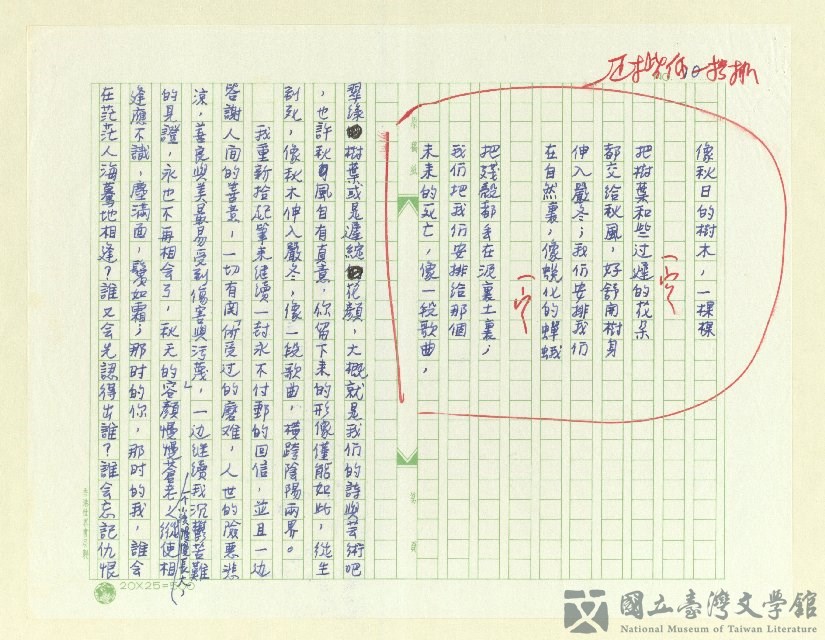 像秋日的樹木，一棵棵
把樹葉和些过遲的花朵
都交給秋風，好舒開樹身
伸入嚴冬；我们安排我们
在自然裏，像蜕化的蟬蛾
把殘殼都丢在泥裏土裏；
我们把我们安排給那個
未来的死亡，像一段歌曲，
翠绿樹葉或是遲綻花顏，大概就是我们的詩與芸術吧
，也許秋風自有真意，你留下来的形像僅能如此，從生
到死，像秋木伸入嚴冬，像一段歌曲，横跨陰陽兩界。
我重新拾起筆来继續一封永不付郵的回信，並且一边
答謝人间的善意，一切有関「所受过的磨难，人世的险恶悲
涼，善良與美最易受到傷害與污蔑」，一边继續我沉鬱苦難
的見證，永也不再相会了，秋天的容顏慢慢蒼老，從使相
逢應不識，塵满面，鬢如霜；那时的你，那时的我，誰会
在茫茫人海驀地相逢？誰又会先認得出誰？誰会忘記仇恨
20X25=500
國立臺灣文學館
National Museum of Taiwan Literature